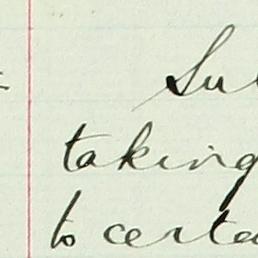 Sul
taking
to certa